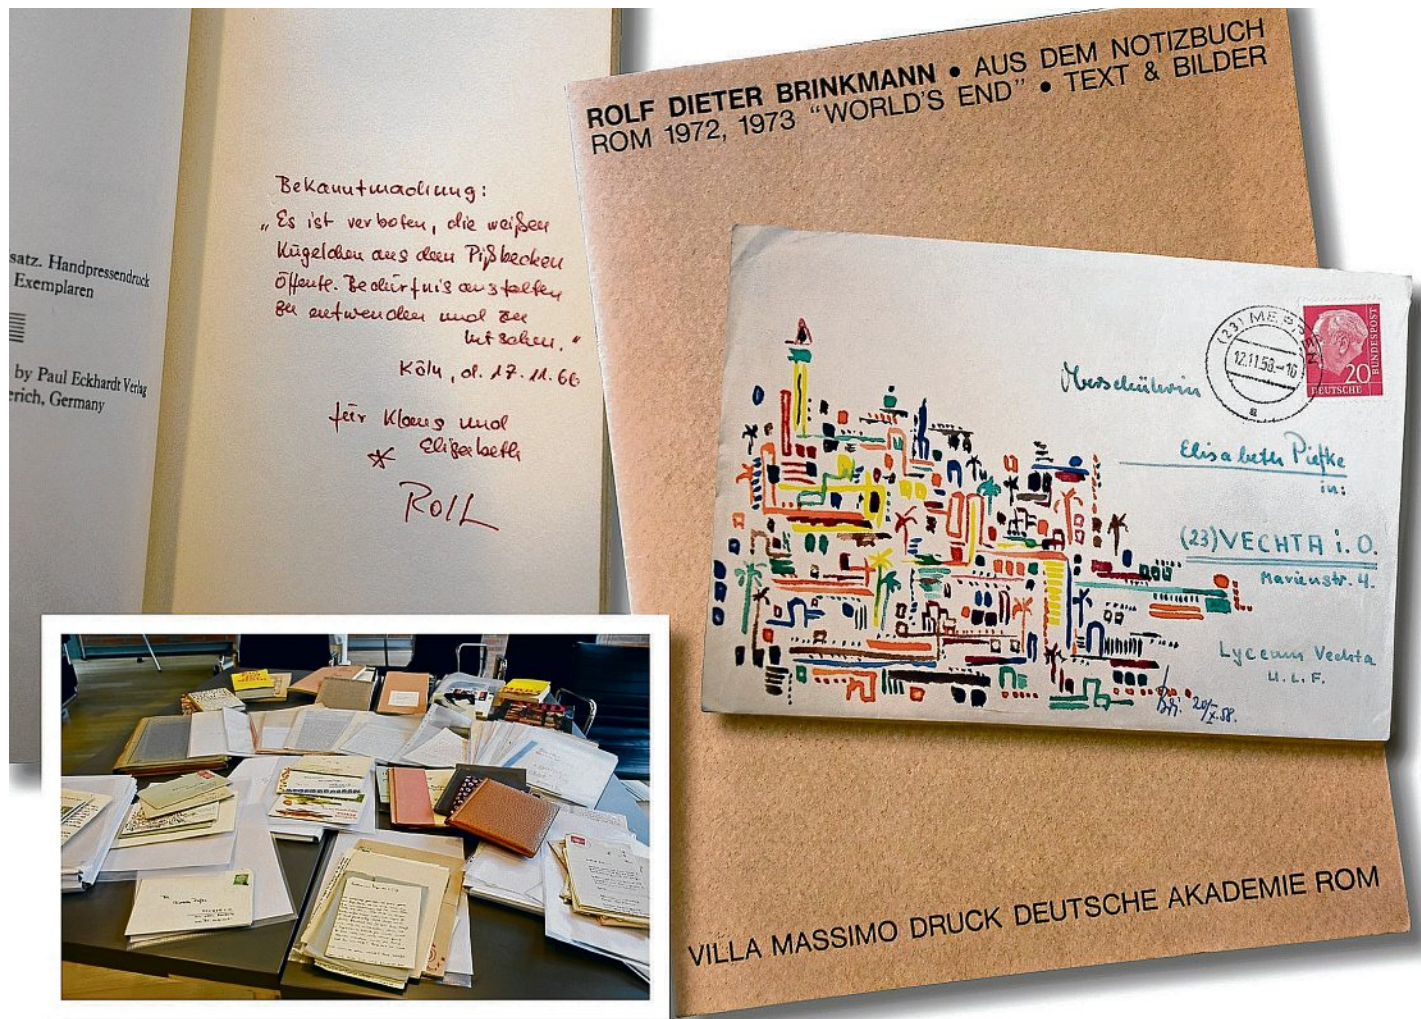 satz. Handpressendruck
Exemplaren
by Paul Eckhardt Verlag
erich, Germany
Bekanntmachung:
„Es ist verboten, die weißen
Kügelchen aus dem Pißbecken
öffentl. Bedürfnisanstalten
zu entwenden und zu
lutschen."
Köln, d. 17.11.66
für Klaus und
Elisabeth
Rolf
ROLF DIETER BRINKMANN • AUS DEM NOTIZBUCH
ROM 1972, 1973 “WORLD'S END” • TEXT & BILDER
(23) MEPPEN
12.11.58.-16
a
20
DEUTSCHE
BUNDESPOST
Oberschülerin
Elisabeth Piefke
in:
(23) VECHTA i. O.
Marienstr. 4.
Lyceum Vechta
U. L. F.
Bri. 20/X.58.
VILLA MASSIMO DRUCK DEUTSCHE AKADEMIE ROM